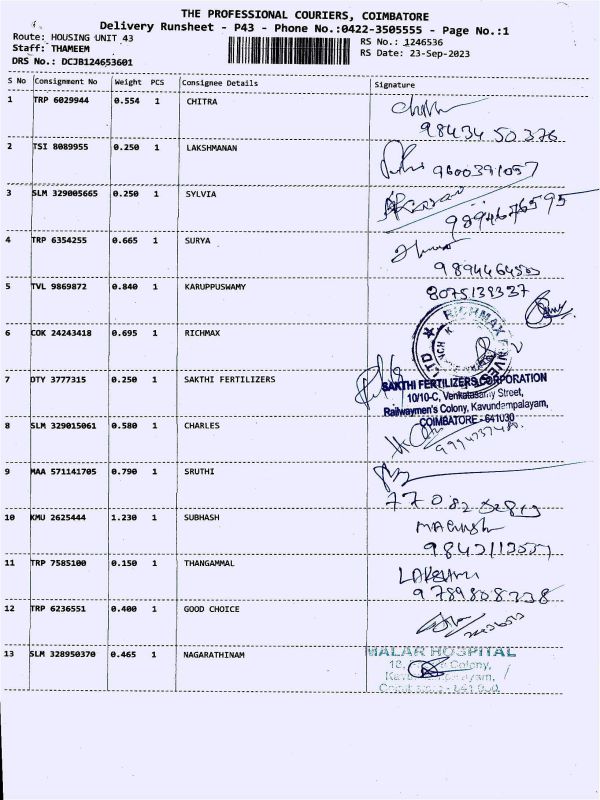 THE PROFESSIONAL COURIERS, COIMBATORE
Delivery Runsheet - P43 - Phone No.:0422-3505555 - Page No.:1
Route: HOUSING UNIT 43 RS No.: 1246536
Staff: THAMEEM RS Date: 23-Sep-2023
DRS No.: DCJB124653601
S No Consignment No Weight PCS Consignee Details Signature
1 TRP 6029944 0.554 1 CHITRA
98434 50376
2 TSI 8089955 0.250 1 LAKSHMANAN
9600391057
3 SLM 329005665 0.250 1 SYLVIA
9894676595
4 TRP 6354255 0.665 1 SURYA
5 TVL 9869872 0.840 1 KARUPPUSWAMY
8075139337
6 COK 24243418 0.695 1 RICHMAX
RICHMAX
LTD
7 DTY 3777315 0.250 1 SAKTHI FERTILIZERS
SAKTHI FERTILIZERS CORPORATION
10/10-C, Venkatasamy Street,
Railwaymen's Colony, Kavundampalayam,
COIMBATORE - 641030
8 SLM 329015061 0.580 1 CHARLES
9 MAA 571141705 0.790 1 SRUTHI
10 KMU 2625444 1.230 1 SUBHASH
11 TRP 7585100 0.150 1 THANGAMMAL
9789808238
12 TRP 6236551 0.400 1 GOOD CHOICE
13 SLM 328950370 0.465 1 NAGARATHINAM
MALAR HOSPITAL
Colony,